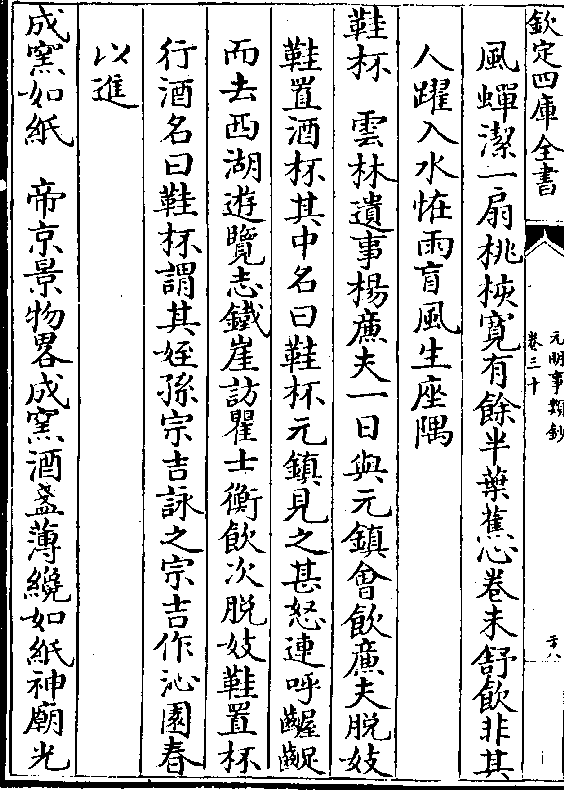 欽定四庫全書
元明事類鈔
卷三十
風蟬潔一扇桃梜寬有餘半葉蕉心卷未舒飲非其
人躍入水怪雨盲風生座隅
鞋杯　雲林遺事楊廉夫一日與元鎮會飲廉夫脫妓
鞋置酒杯其中名曰鞋杯元鎮見之甚怒連呼齷齪
而去西湖遊覽志鐵崖訪瞿士衡飲次脫妓鞋置杯
行酒名曰鞋杯謂其姪孫宗吉詠之宗吉作沁園春
以進
成窯如紙　帝京景物畧成窯酒盞薄纔如紙神廟光